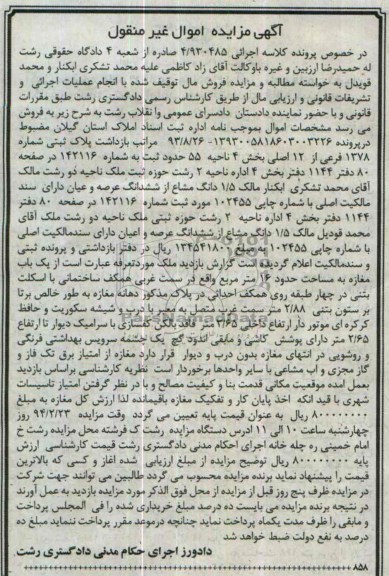 آگهی مزایده اموال غیر منقول
در خصوص پرونده کلاسه اجرائی ۴/۹۳۰۴۸۵ صادره از شعبه ۴ دادگاه حقوقی رشت
له حمیدرضا ارزبین و غیره باوکالت آقای زاد کاظمی علیه محمد تشکری ابکنار و محمد
قویدل به خواسته مطالبه و مزایده فروش مال توقیف شده با انجام عملیات اجرائی و
تشریفات قانونی و ارزیابی مال از طریق کارشناس رسمی دادگستری رشت طبق مقررات
قانونی و با حضور نماینده دادستان دادسرای عمومی وا نقلاب رشت به شرح زیر به فروش
می رسد مشخصات اموال بموجب نامه اداره ثبت اسناد املاک استان گیلان مضبوط
درپرونده ۱۳۹۳۰۰۵۸۱۸۶۰۳۰۰۳۲۲۶- ۹۳/۸/۲۶ مراتب بازداشت پلاک ثبتی شماره
۱۳۷۸ فرعی از ۱۲ اصلی بخش ۴ ناحیه ۵۵ حدود ثبت به شماره ۱۴۲۱۱۶ در صفحه
۸۰ دفتر ۱۱۴۴ دفتر بخش ۴ اداره ناحیه ۲ رشت حوزه ثبت ملک ناحیه دو رشت مالک
آقای محمد تشکری ابکنار مالک ۱/۵ دانگ مشاع از ششدانگ عرصه و عیان دارای سند
مالکیت اصلی با شماره چاپی ۱۰۲۴۵۵ مورد ثبت شماره ۱۴۲۱۱۶ در صفحه ۸۰ دفتر
۱۱۴۴ دفتر بخش ۴ اداره ناحیه ۲ رشت حوزه ثبتی ملک ناحیه دو رشت ملک آقای
محمد قودیل مالک ۱/۵ دانگ مشاع از ششدانگ عرصه و اعیان دارای سندمالکیت اصلی
با شماره چاپی ۱۰۲۴۵۵ بمبلغ ۱۳۴۵۴۱۸۰۰ ریال در دفتر بازداشتی و پرونده ثبتی
و سندمالکیت اعلام گردیده است گزارش بازدید ملک موردتعرفه عبارت است از یک باب
مغازه به مساحت حدود ۱۶ متر مربع واقع در سمت غربی همکف ساختمانی با اسکلت
بتنی در چهار طبقه روی همکف احداثی در پلاک مذکور دهانه مغازه به طور خالص برتا
بر ستون بتنی ۲/۸۸ متر سمت غرب متصل به معبر با درب شیشه سکوریت و حافظ
کرکره ای موتور دار ارتفاع داخل ۳/۶۵ متر فاقد بالکن کفسازی با سرامیک دیوار تا ارتفاع
۲/۶۵ متر دارای پوشش کاشی و مابقی اندود گچ یک چشمه سرویس بهداشتی فرنگی
و روشویی در انتهای مغازه بدون درب و دیوار قرار دارد مغازه از امتیاز برق تک فاز و
گاز مجزی و اب مشاعی با سایر واحدها برخوردار است نظریه کارشناسی براساس بازدید
بعمل امده موقعیت مکانی قدمت بنا و کیفیت مصالح و با در نظر گرفتن امتیاز تاسیسات
شهری با قید انکه اخذ پایان کار و تفکیک مغازه باقیمانده لذا ارزش کل مغازه به مبلغ
۸۰۰۰۰۰۰۰۰ ریال به عنوان قیمت پایه تعیین می گردد وقت مزایده ۹۴/۲/۲۳ روز
چهارشنبه ساعت ۱۰ الی ۱۱ ادرس دستگاه مزایده رشت ک فرشته محل مزایده رشت خ
امام خمینی ره جله خانه اجرای احکام مدنی دادگستری رشت قیمت کارشناسی ارزش
پایه ۸۰۰۰۰۰۰۰۰ ریال توضیح مزایده از مبلغ ارزیابی شده اغاز و کسی که بالاترین
قیمت را پیشنهاد نماید برنده مزایده محسوب می گردد طالبین می توانند جهت شرکت
در مزایده ظرف پنج روز قبل از مزایده از محل فوق الذکر مورد مزایده بازدید به عمل آورند
در نتیجه برنده مزایده می بایست ده درصد مبلغ خریداری شده را فی المجلس پرداخت
و مابقی را ظرف مدت یکماه پرداخت نماید چنانچه درموعد مقرر پرداخت ننماید مبلغ ده
درصد به نفع دولت ضبط خواهد شد
دادورز اجرای حکام مدنی دادگستری رشت
۸۵۸